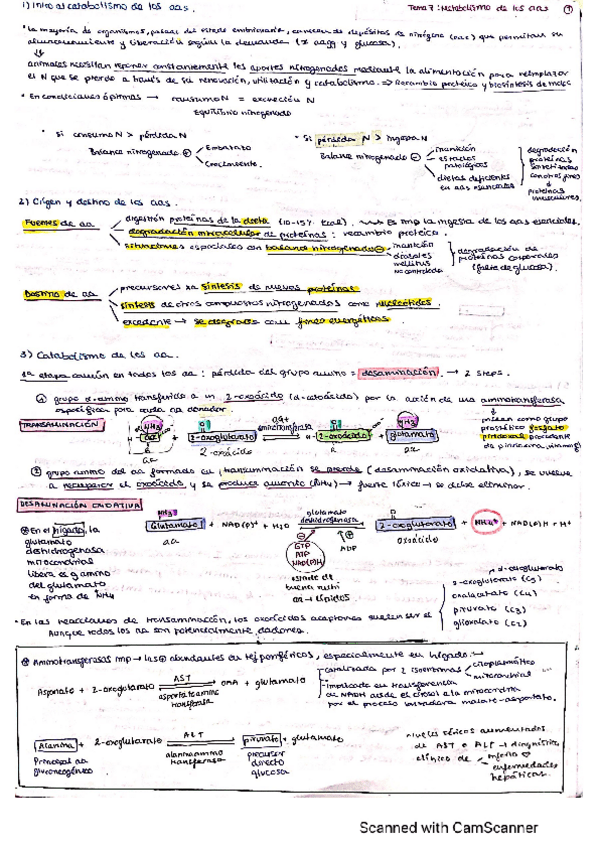 1) Intro al catabolismo de los aas.
Tema 7: Metabolismo de los aas ①
• la mayoría de organismos, pasado del estado embrionario, carecen de depósitos de nitrógeno (aas) que permitan su
almacenamiento y liberación según la demanda (≠ aagg y glucosa).
⇓
animales necesitan reponer constantemente los aportes nitrogenados mediante la alimentación para reemplazar
el N que se pierde a través de su renovación, utilización y catabolismo. ⇒ Recambio proteico y biosíntesis de
• En condiciones óptimas → consumo N = excreción N
Equilibrio nitrogenado
• Si consumo N > pérdida N
Balance nitrogenado ⊕
Embarazo
Crecimiento.
• Si pérdida N > ingesta N
Balance nitrogenado ⊖
inanición
estados patológicos
dietas deficientes en aas esenciales
degradación
proteínas
proteínas
musculares.
2) Origen y destino de los aas.
Fuentes de aa
digestión proteínas de la dieta (10-15% kcal). Es imp la ingesta de los aas esenciales.
degradación intracelular de proteínas: recambio proteico.
situaciones especiales con balance nitrogenado ⊖
inanición
diabetes
mellitus
no controlada
degradación de
proteínas corporales
(fuente de glucosa).
Destino de aa
precursores xa síntesis de nuevas proteínas
síntesis de otros compuestos nitrogenados como nucleótidos.
excedente → se degradan con fines energéticos.
3) Catabolismo de los aa.
1ª etapa común en todos los aa: pérdida del grupo amino = desaminación. → 2 steps.
① grupo α-amino transferido a un 2-oxoácido (α-cetoácido) por la acción de una aminotransferasa
específica para cada aa donador.
TRANSAMINACIÓN
NH3
aa + 2-oxoglutarato
aminotransferasa
2-oxoácido + glutamato
NH3
2-oxoácido
aa
usan como grupo
prostético fosfato
piridoxal procedente
de piridoxina
② grupo amino del aa formado en transaminación se pierde (desaminación oxidativa), se vuelve
a recuperar el oxoácido y se produce amonio (NH4) → fuerte tóxico → se debe eliminar.
DESAMINACIÓN OXIDATIVA
NH3
⊛ En el hígado, la
glutamato
deshidrogenasa
mitocondrial
libera es g amino
del glutamato
en forma de NH4
Glutamato + NAD(P)+ + H2O
aa
glutamato
deshidrogenasa
⊖
GTP
ATP
NAD(P)H
estado de
buena nutri
aa → lípidos
⊕
ADP
2-oxoglutarato + NH4+ + NAD(P)H + H+
oxoácido
• En las reacciones de transaminación, los oxoácidos aceptores suelen ser el
Aunque todos los aa son potencialmente dadores.
α-cetoglutarato
2-oxoglutarato (C5)
oxalacetato (C4)
piruvato (C3)
glioxalato (C2)
⊛ Aminotransferasas imp → las ⊕ abundantes en tej periféricos, especialmente en hígado.
Aspartato + 2-oxoglutarato
AST
aspartato amino
transferasa
OAA + glutamato
catalizada por 2 isoenzimas
citoplasmático
mitocondrial
implicada en transferencia
de NADH desde el citosol a la mitocondria
por el proceso lanzadera malato-aspartato.
Alanina + 2-oxoglutarato
Principal aa
gluconeogénico
ALT
alanina amino
transferasa
piruvato + glutamato
precursor
directo
glucosa
niveles séricos aumentados
de AST o ALT → diagnóstico
clínico de
infarto
enfermedades
hepáticas.
Scanned with CamScanner